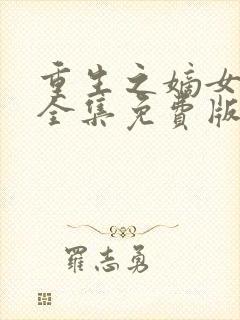 重生之嫡女
全集免费版
羅志勇